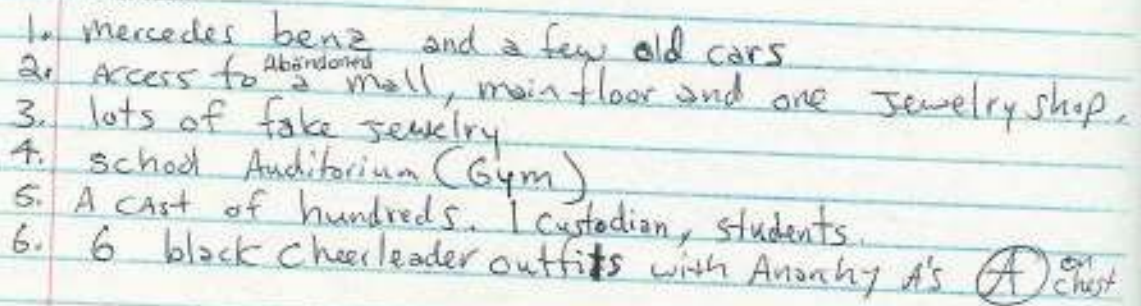 1. mercedes benz and a few old cars
2. Access to Abandoned a mall, main floor and one Jewelry shop.
3. lots of fake jewelry
4. school Auditorium (Gym)
5. A CAst of hundreds. 1 custodian, students.
6. 6 black cheerleader outfits with Anarchy A's Ⓐ on chest